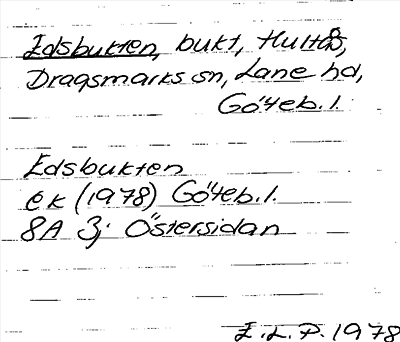 Edsbukten, bukt, Hultås,
Dragsmarks sn, Lane hd,
Göteb. l.
Edsbukten
ek (1978) Göteb. l.
8A 3j Östersidan
E.L.P. 1978